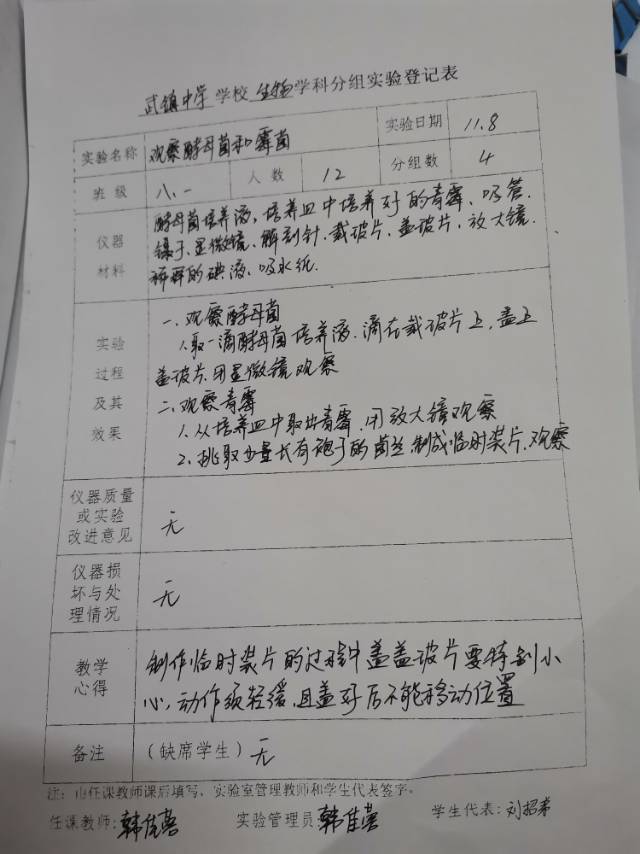 武镇中学学校生物学科分组实验登记表
实验名称 观察酵母菌和霉菌 实验日期 11.8
班级 八.一 人数 12 分组数 4
仪器材料 酵母菌培养液，培养皿中培养好的青霉、吸管.
镊子、显微镜、解剖针、载玻片、盖玻片、放大镜.
稀释的碘液、吸水纸.
实验过程及其效果 一、观察酵母菌
1.取一滴酵母菌培养液.滴在载玻片上，盖上
盖玻片.用显微镜观察
二、观察青霉
1.从培养皿中取出青霉.用放大镜观察
2.挑取少量长有孢子的菌丝.制成临时装片.观察
仪器质量或实验改进意见 无
仪器损坏与处理情况 无
教学心得 制作临时装片的过程中盖盖玻片要特别小
心，动作须轻缓，且盖好后不能移动位置
备注 （缺席学生）无
注：由任课教师课后填写、实验室管理教师和学生代表签字。
任课教师：韩佳 实验管理员 韩佳 学生代表：刘招弟